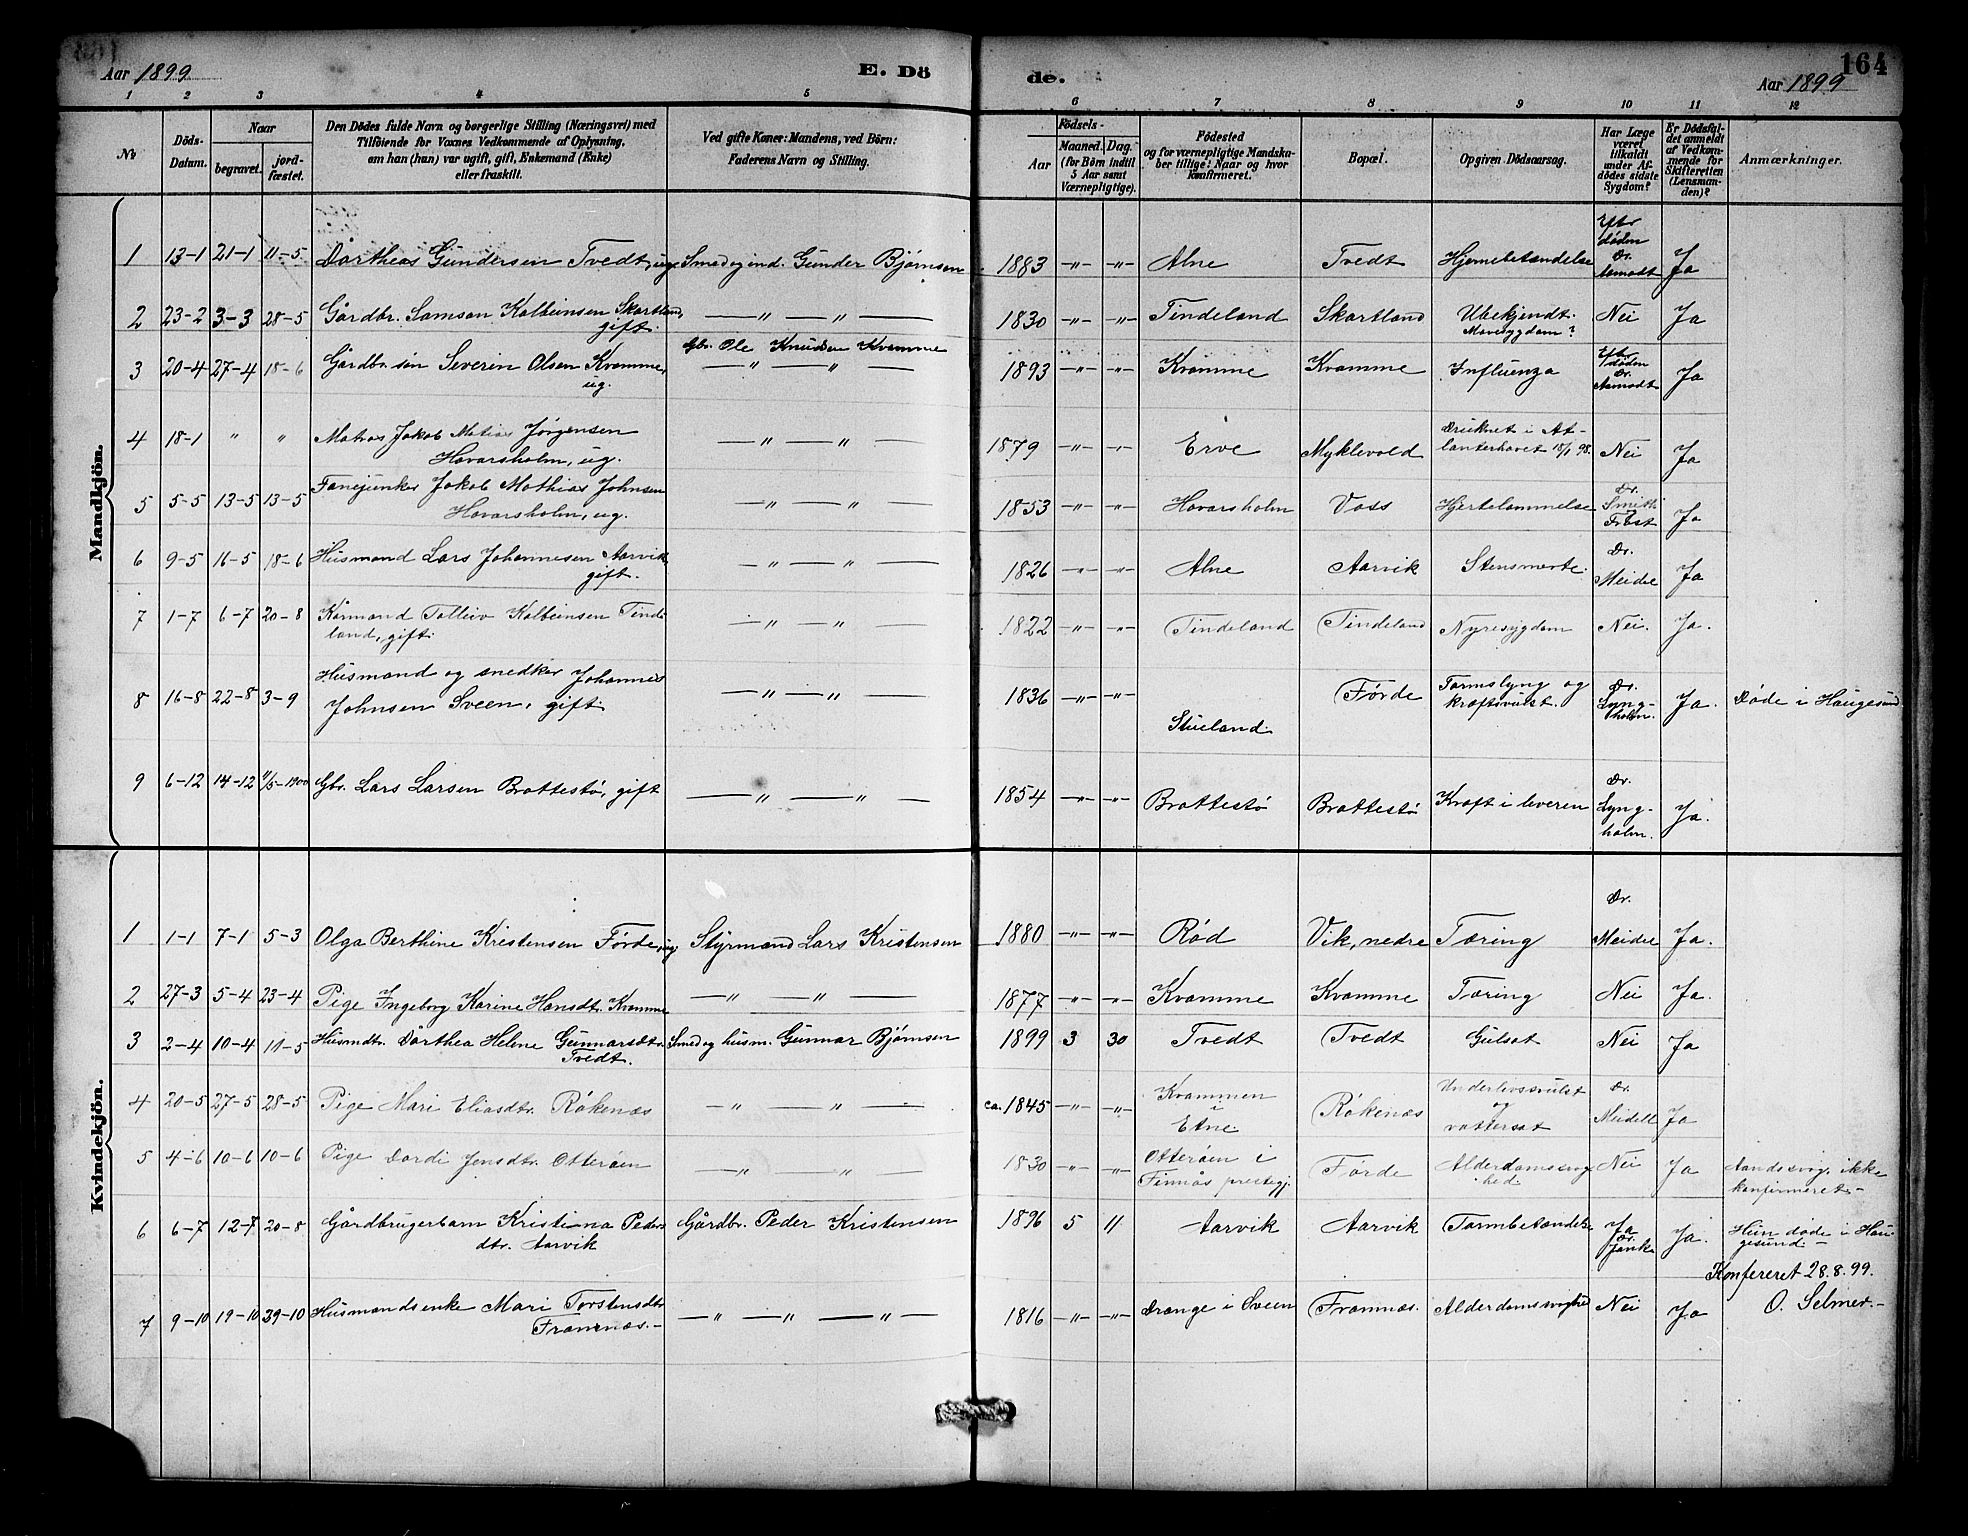 Aar 1899
E. Dö
de.
164
Aar 1899
1 2 3 4 5 6 7 8 9 10 11 12
No
Döds-Datum.
Naar
begravet.
jord-fæstet.
Den Dödes fulde Navn og borgerlige Stilling (Næringsvei) med
Tilföiende for Voxnes Vedkommende af Oplysning,
om han (hun) var ugift, gift, Enkemand (Enke)
eller fraskilt.
Ved gifte Koner: Mandens, ved Börn:
Faderens Navn og Stilling.
Födsels-
Aar
Maaned. Dag.
(for Börn indtil
5 Aar samt
Værnepligtige).
Födested
og for værnepligtige Mandska-
ber tillige: Naar og hvor
konfirmeret.
Bopæl.
Opgiven Dödsaarsag.
Har Læge
været
tilkaldt
under Af-
dödes sidste
Sygdom?
Er Dödsfal-
det anmeldt
af Vedkom-
mende for
Skifteretten
(Lensman-
den)?
Anmærkninger.
Mandkjön.
1 13-1 21-1 11-5 Dortheas Gundersen Tvedt, ug. Smed og ind. Gunder Bjørnsen 1883 -"- -"- Alne Tvedt Hjernebetændelse Efter døden Dr. Aamodt Ja
2 23-2 3-3 28-5 Gårdbr. Samson Kolbeinsen Skartland, gift. — " — " — 1830 -"- -"- Tindeland Skartland Ubekjendt. Mavesygdom? Nei Ja
3 20-4 27-4 18-6 Gårdbr. søn Severin Olsen Kvamme, ug. Gbr. Ole Knudsen Kvamme — " — " — 1893 -"- -"- Kvamme Kvamme Influenza Efter døden Dr. Aamodt Ja
4 18-1 " " Matros Jakob Matias Jørgensen Hovarsholm, ug. — " — " — 1879 -"- -"- Erve Myklevold Druknet i At-lanterhavet 18/1 98. Nei Ja
5 5-5 13-5 13-5 Fanejunker Jakob Mathias Johnsen Hovarsholm, ug. — " — " — 1853 -"- -"- Hovarsholm Voss Hjertelammelse Dr. Smith Ja
6 9-5 16-5 18-6 Husmand Lars Johannesen Aarvik, gift. — " — " — 1826 -"- -"- Alne Aarvik Stensmerte. Dr. Meidel Ja
7 1-7 6-7 20-8 Kårmand Tolleiv Kolbeinsen Tinde-land, gift. — " — " — 1822 -"- -"- Tindeland Tindeland Nyresygdom Nei. Ja.
8 16-8 22-8 3-9 Husmand og snedker Johannes Johnsen Sveen, gift. — " — " — 1836 -"- -"- Stueland. Førde Tarmslyng og kræftsvulst. Dr. Lyng-holm. Ja. Døde i Haugesund
9 6-12 14-12 11/5-1900 Gbr. Lars Larsen Brattestø, gift — " — " — 1854 -"- -"- Brattestø Brattestø Kræft i leveren Dr. Lyng-holm. Ja.
Kvindekjön.
1 1-1 7-1 5-3 Olga Berthine Kristensen Førde, ug. Styrmand Lars Kristensen 1880 -"- -"- Rød Vik, nedre Tæring Dr. Meidel Ja.
2 27-3 5-4 23-4 Pige Ingeborg Karine Hansdt. Kvamme — " — " — 1877 -"- -"- Kvamme Kvamme Tæring Nei Ja.
3 2-4 10-4 11-5 Husmdtr. Dorthea Helene Gunnarsdtr. Tvedt. Smed og husm. Gunnar Bjørnsen 1899 3 30 Tvedt Tvedt Gulsot Nei Ja
4 20-5 27-5 28-5 Pige Mari Eliasdtr. Røkenæs — " — " — ca. 1845 -"- -"- Kvammen i Etne. Røkenæs Underlivssvulst og vattersot Dr. Meidell Ja
5 4-6 10-6 10-6 Pige Dordi Jensdtr. Otterøen — " — " — 1830 -"- -"- Otterøen i Finnås prestegj. Førde Alderdomssvaghed. Nei Ja Aandssvag, ikke konfirmeret.-
6 6-7 12-7 20-8 Gårdbrugerbarn Kristiana Peders-dtr. Aarvik Gårdbr. Peder Kristensen 1896 5 11 Aarvik Aarvik Tarmbetændelse Ja Dr. Janke Ja. Hun døde i Hau-gesund.-
Konfereret 28.8.99.
O. Selmer.-
7 9-10 19-10 39-10 Husmandsenke Mari Torstensdtr. Framnæs.- — " — " — " — 1816 -"- -"- Drange i Sveen Framnæs. Alderdomssvaghed Nei Ja